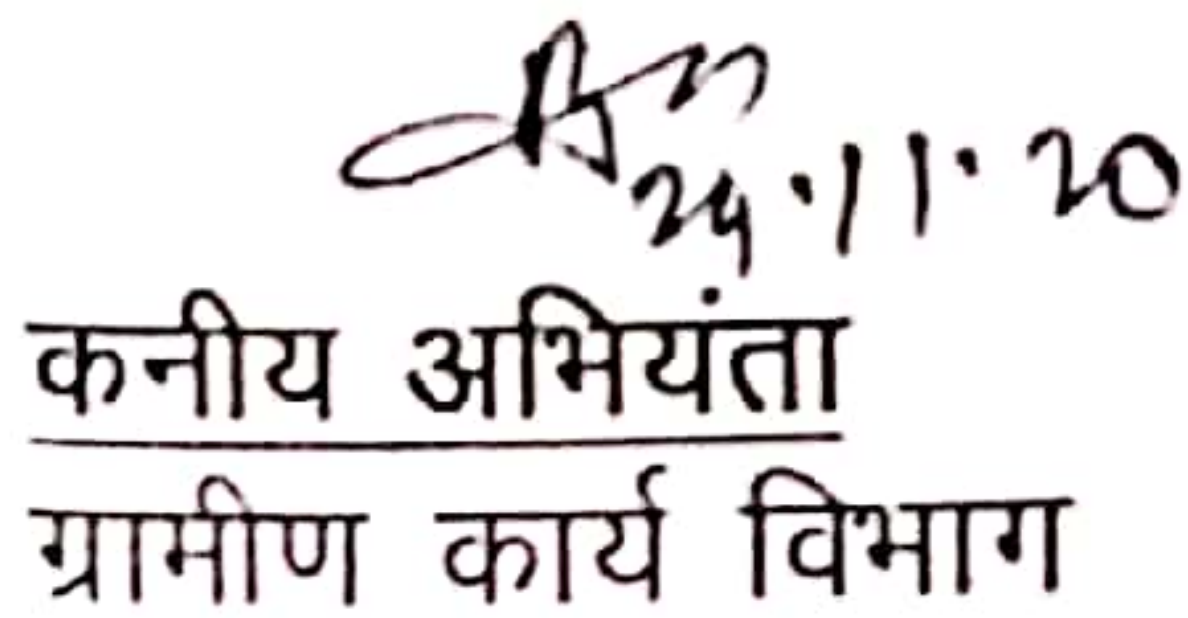 24.11.20
कनीय अभियंता
ग्रामीण कार्य विभाग